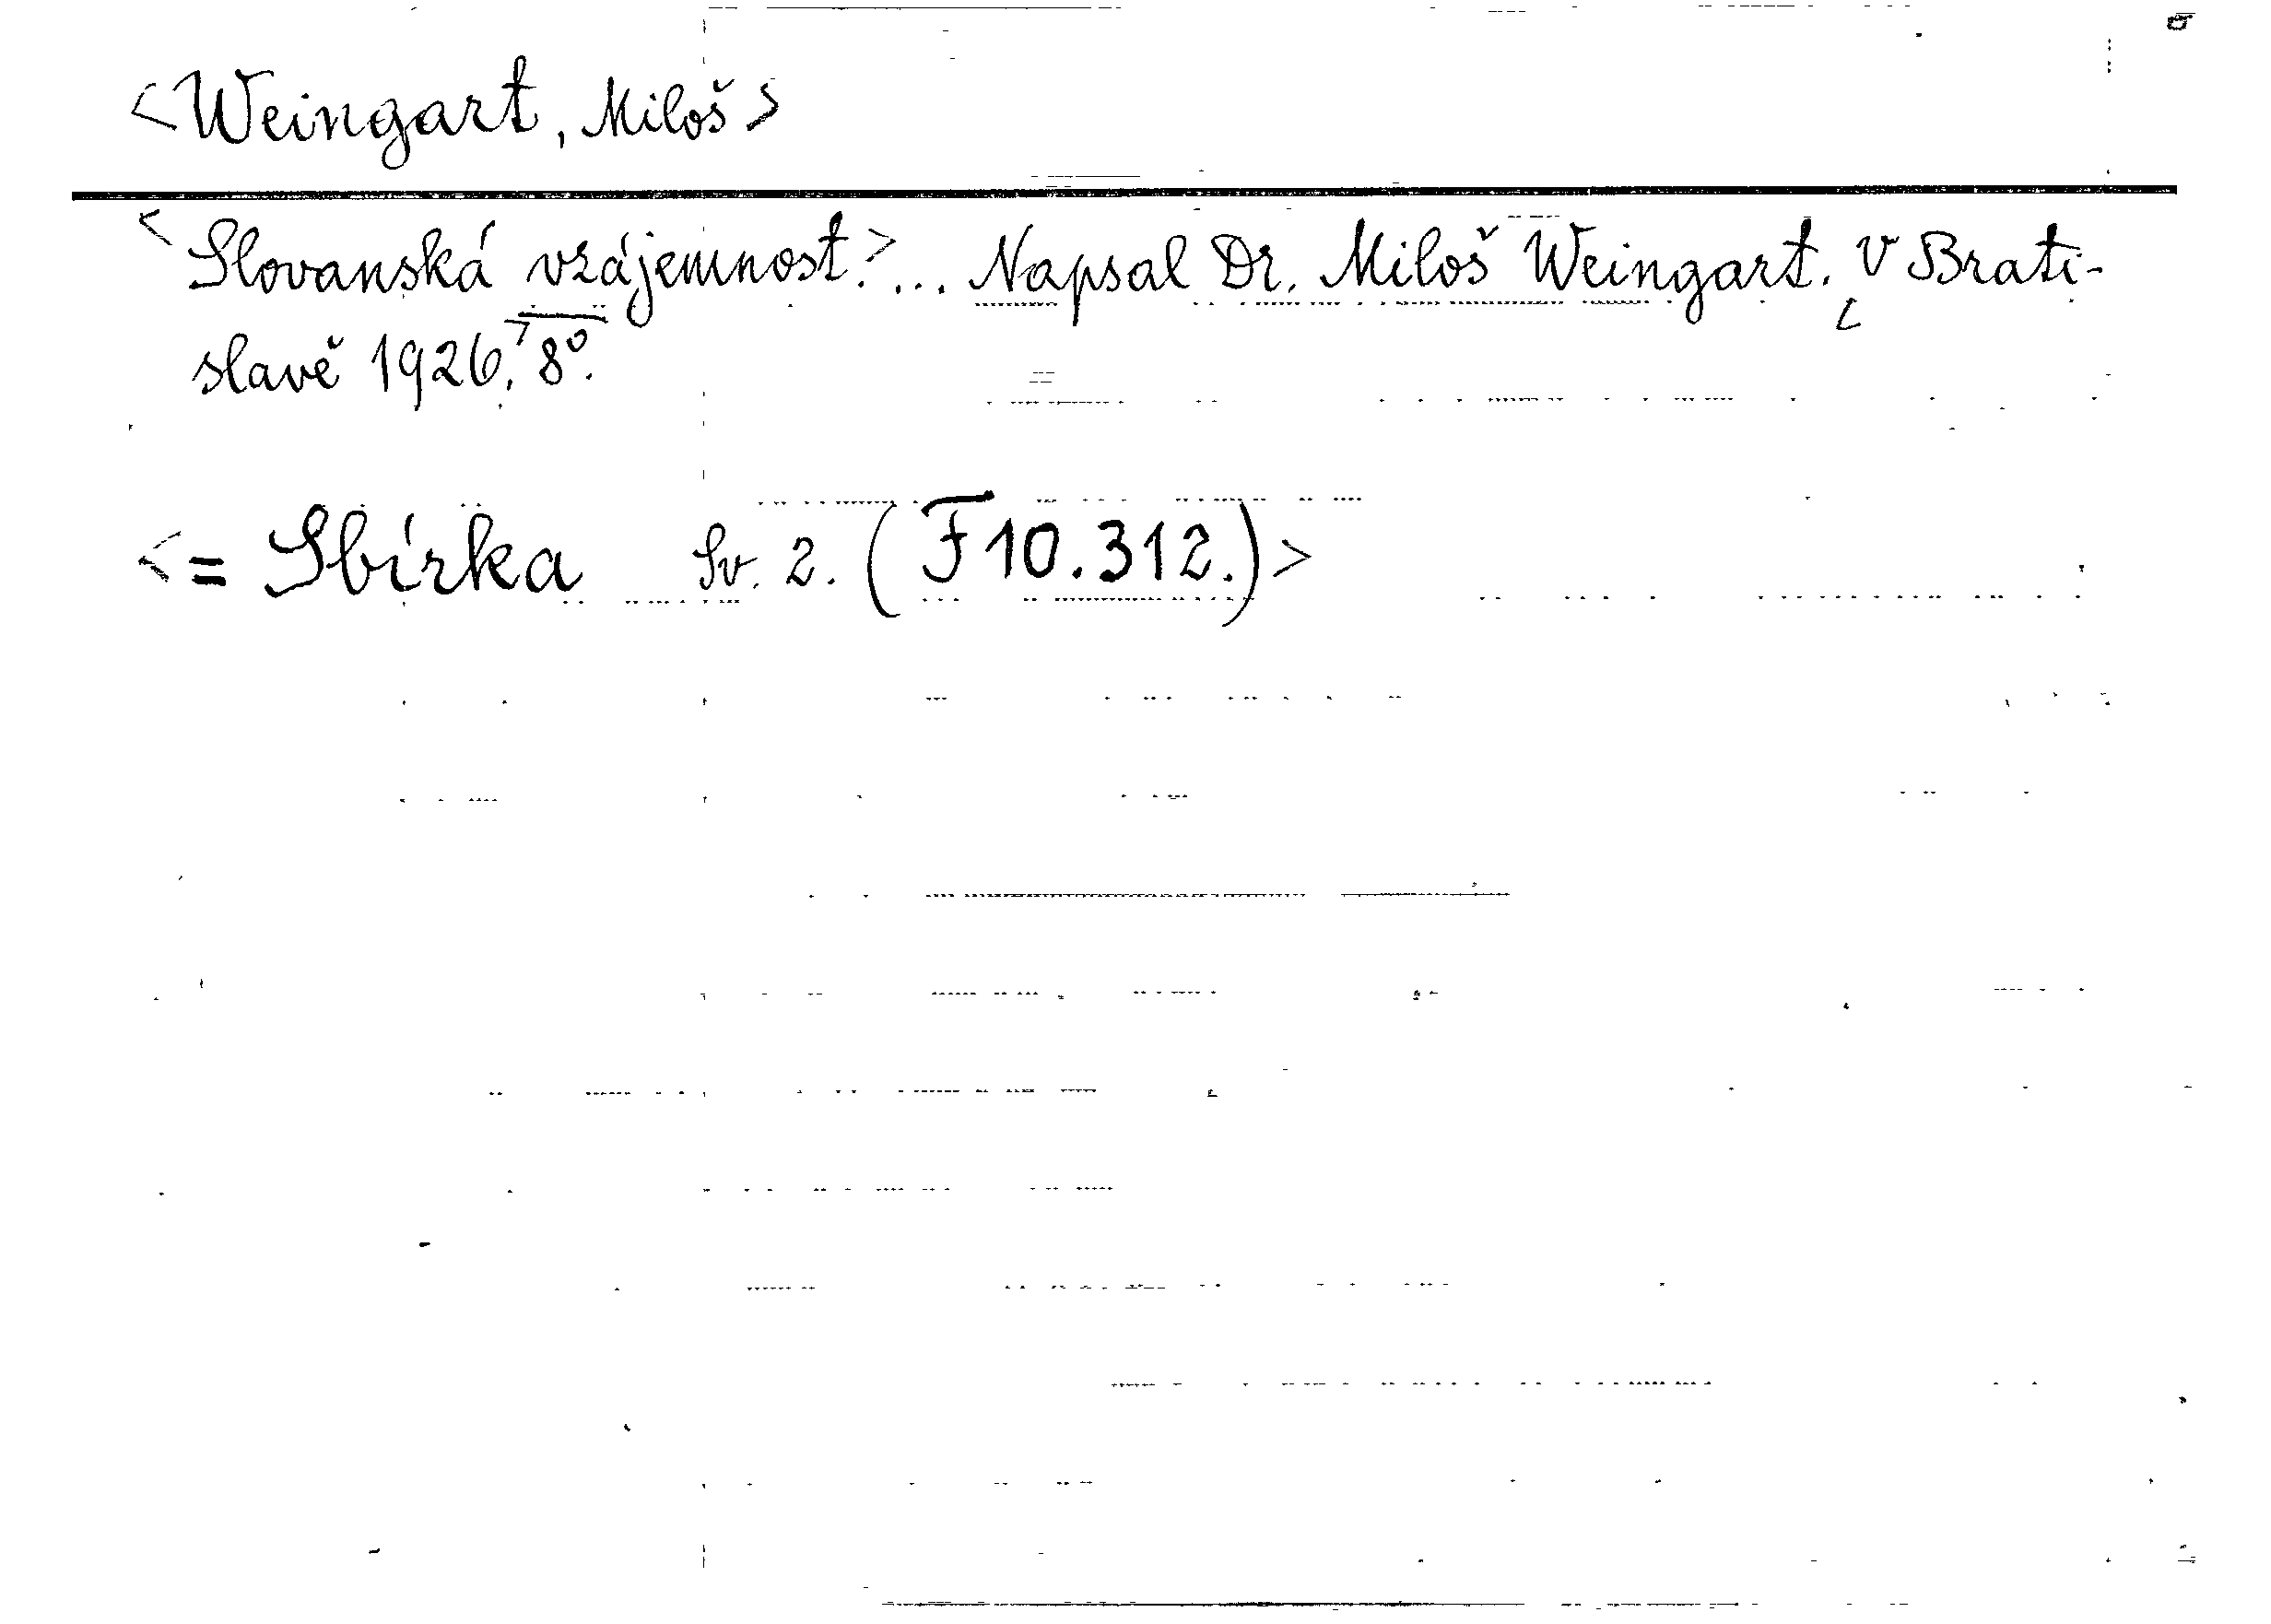 <Weingart, Miloš>
<Slovanská vzájemnost.>... Napsal Dr. Miloš Weingart. <V Brati-
slavě 1926.> 8°.
<= Sbírka Sv. 2. (F 10.312.)>